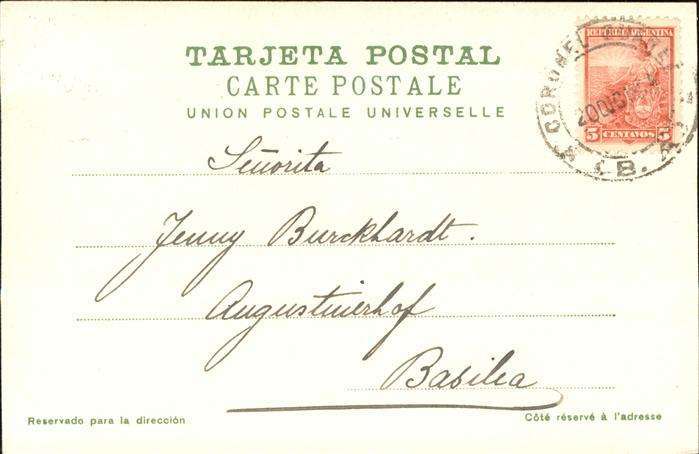 TARJETA POSTAL
CARTE POSTALE
UNION POSTALE UNIVERSELLE
REPUBLICA ARGENTINA
5 CENTAVOS 5
CORONEL
(B. A.)
Señorita
Jenny Burckhardt.
Augustinerhof
Basilea
Reservado para la dirección
Côté réservé à l'adresse